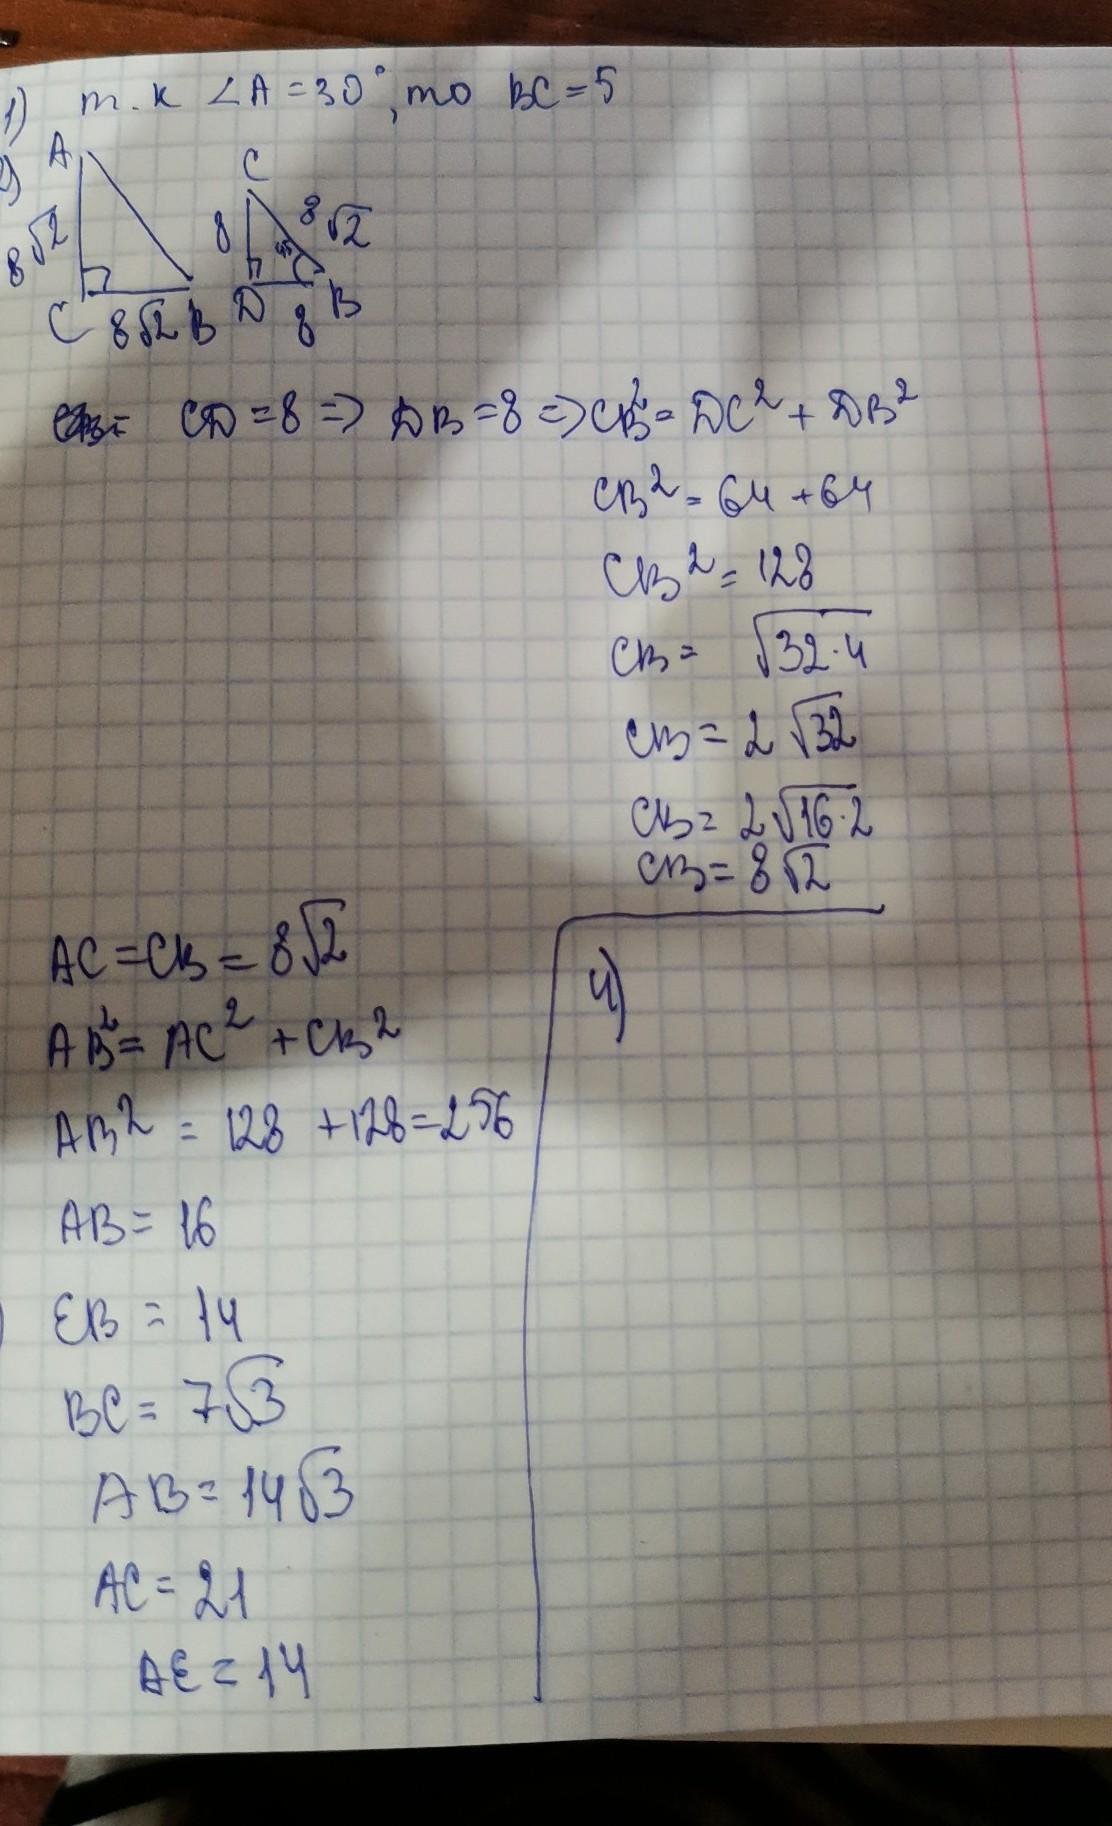 1) т.к ∠A = 30°, то BC = 5
A
8√2
C 8√2 B
C
8 8√2
45
D 8 B
CD = 8 => DB = 8 => CB² = DC² + DB²
CB² = 64 + 64
CB² = 128
CB = √32·4
CB = 2√32
CB = 2√16·2
CB = 8√2
AC = CB = 8√2
AB² = AC² + CB²
AB² = 128 + 128 = 256
AB = 16
EB = 14
BC = 7√3
AB = 14√3
AC = 21
AE = 14
4)